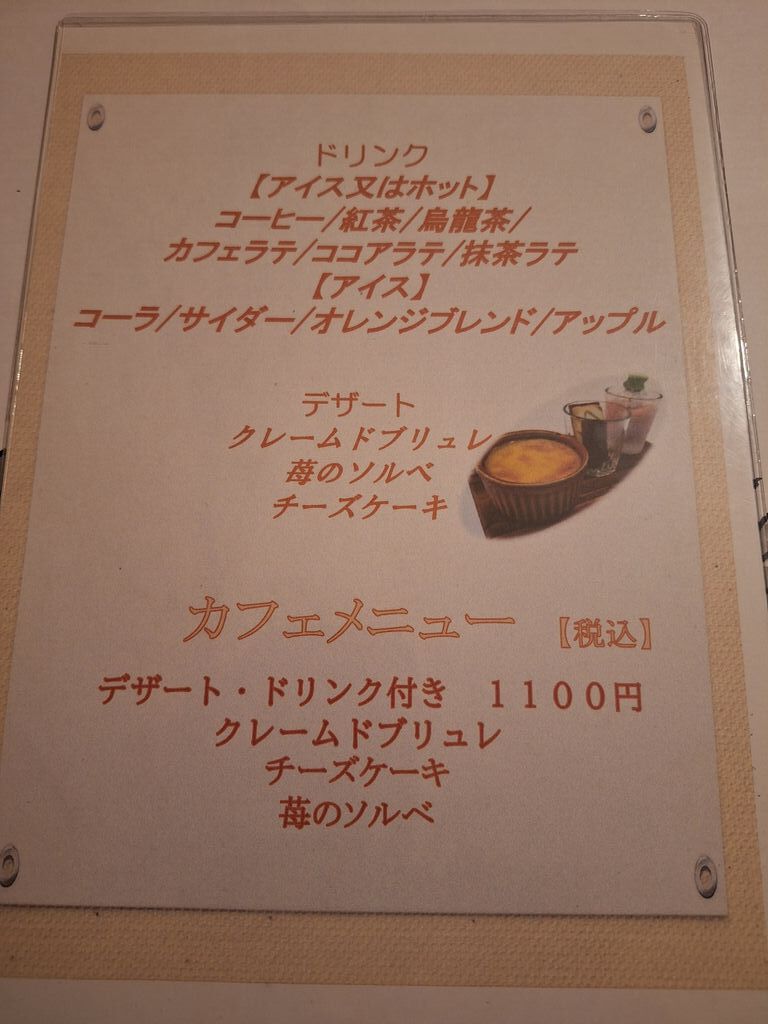 ドリンク
【アイス又はホット】
コーヒー/紅茶/烏龍茶/
カフェラテ/ココアラテ/抹茶ラテ
【アイス】
コーラ/サイダー/オレンジブレンド/アップル
デザート
クレームドブリュレ
苺のソルベ
チーズケーキ
カフェメニュー 【税込】
デザート・ドリンク付き １１００円
クレームドブリュレ
チーズケーキ
苺のソルベ